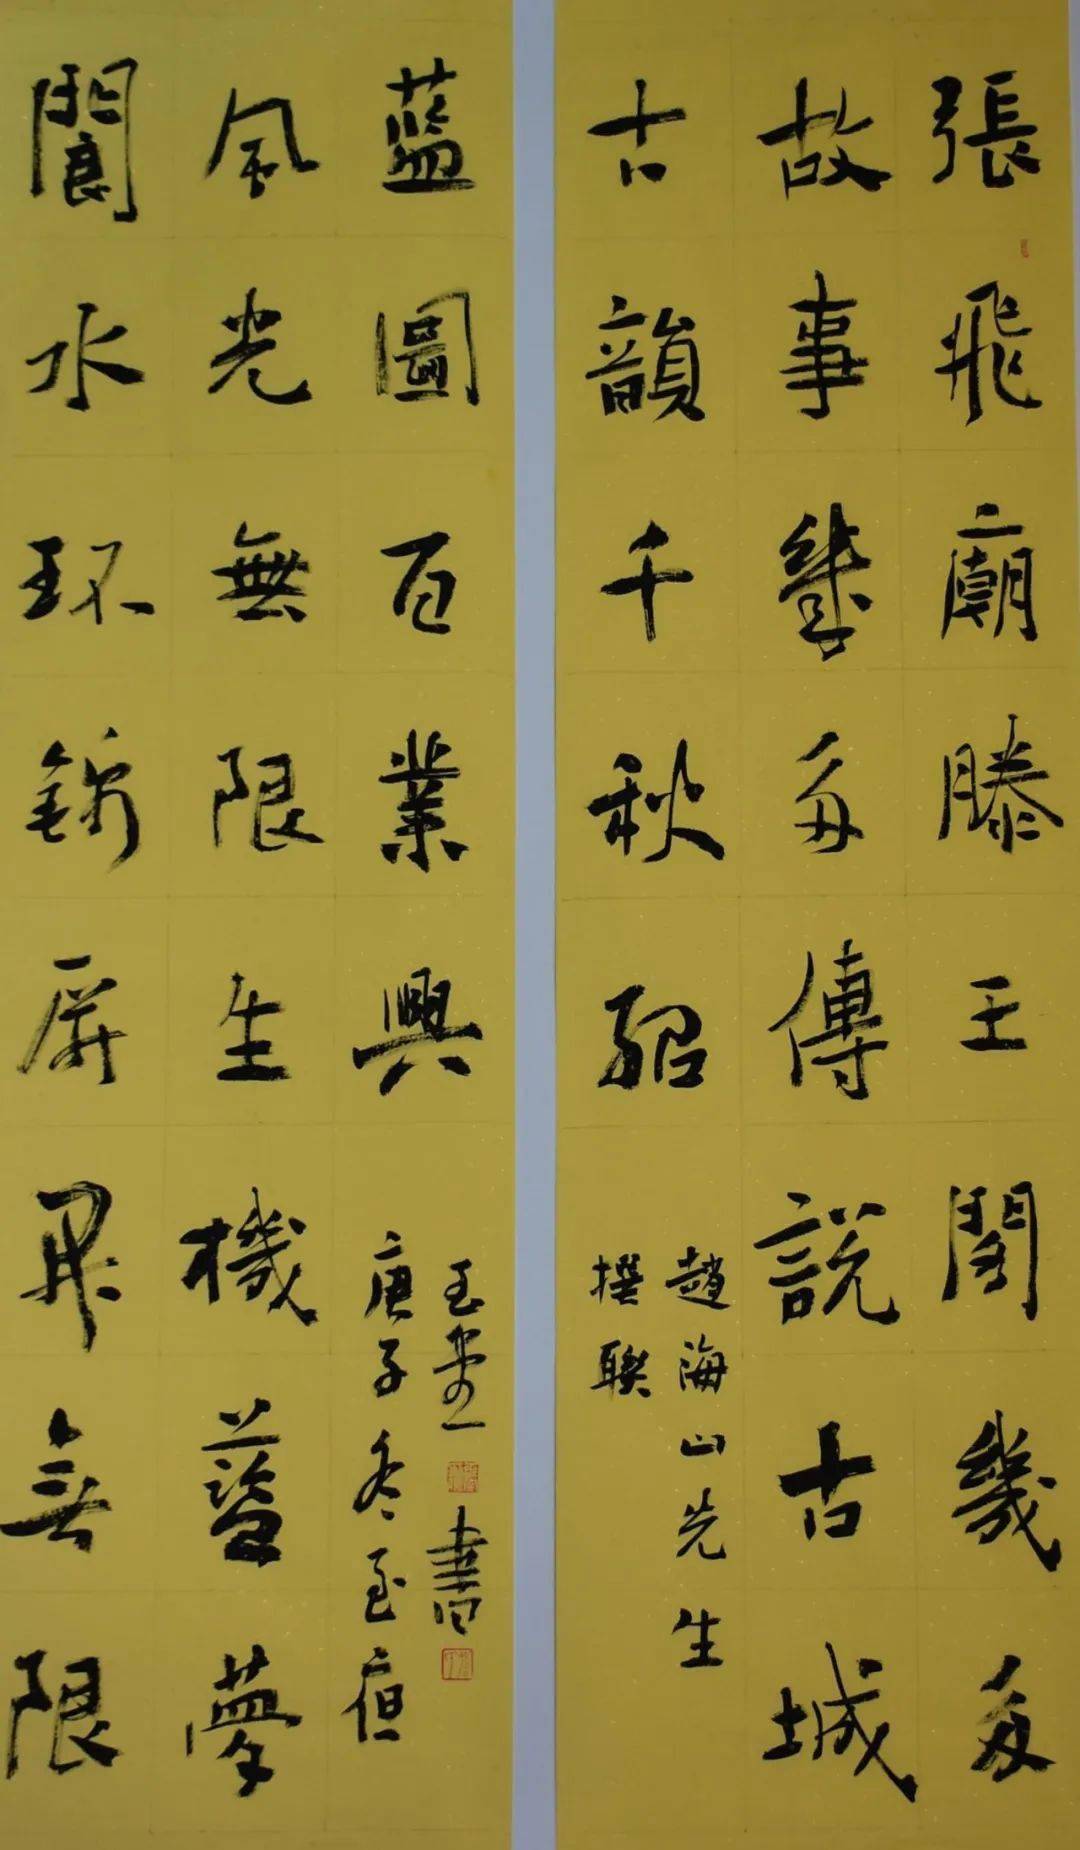 張飛廟滕王閣幾多
故事幾多傳說古城
古韻千秋
趙海山先生
撰聯
閬水環錦屏無限
風光無限生機藍夢
藍圖百業興
庚子冬至
書